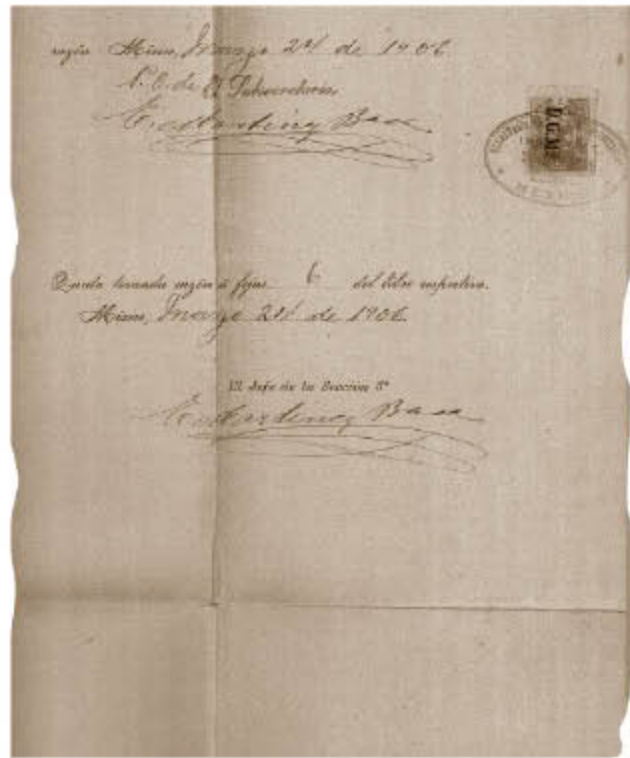 razón México, Marzo 24 de 1906.
P. O. de El Subsecretario,
E. Martinez Baca
D.G.M.
MEXICO
Queda tomada razón á fojas 6 del libro respectivo.
México, Marzo 24 de 1906.
El Jefe de la Sección 3ª
E. Martinez Baca